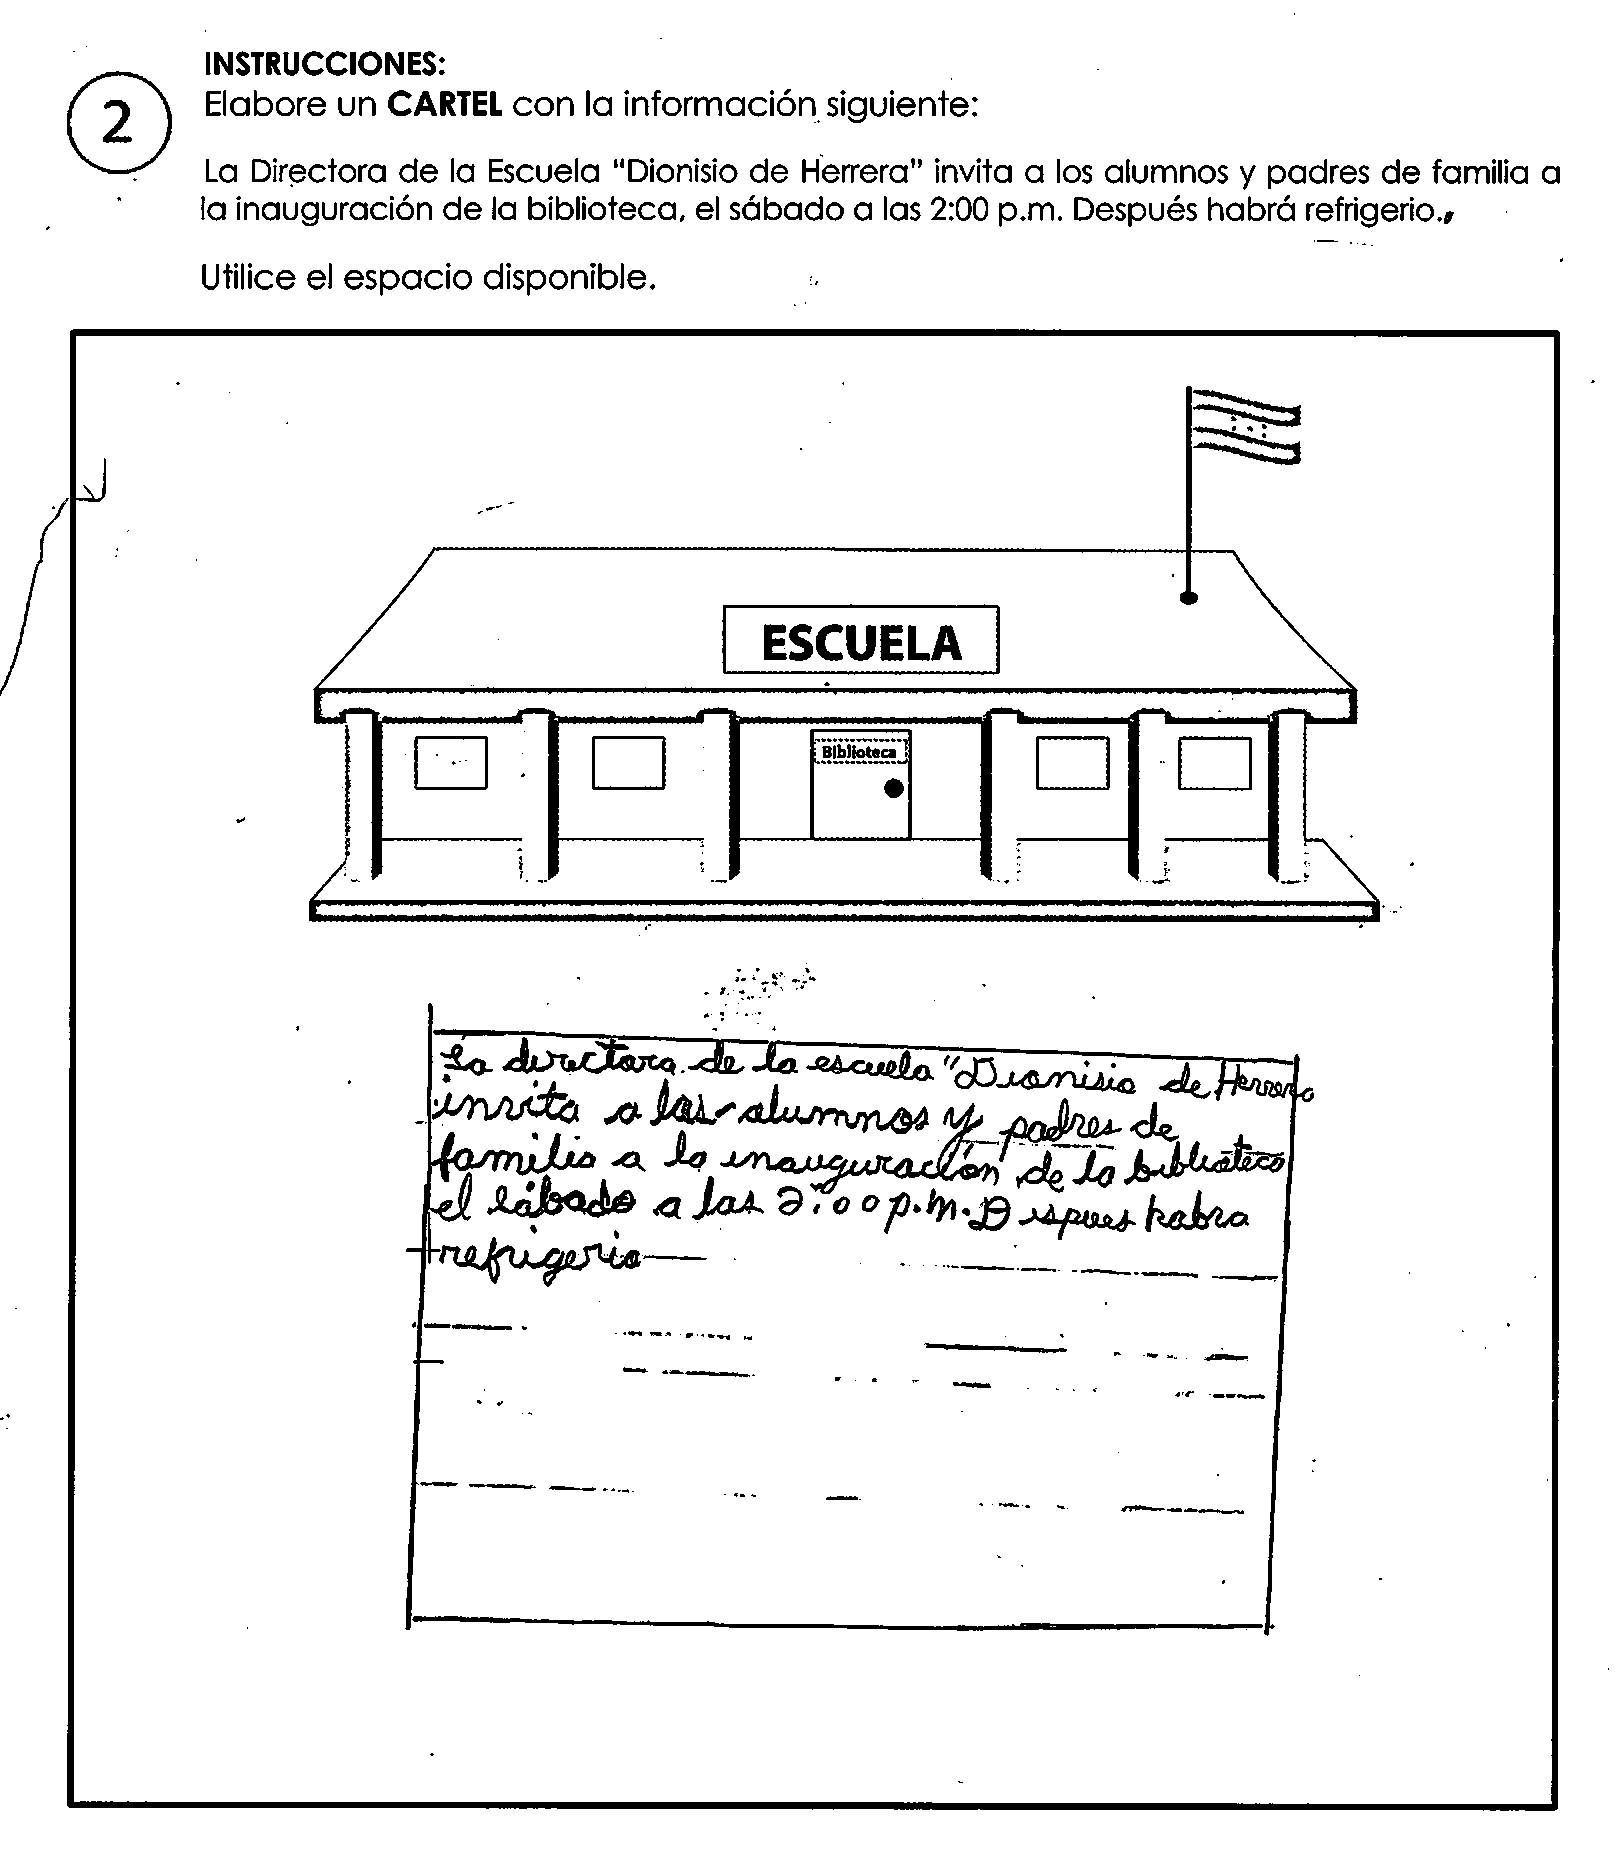 INSTRUCCIONES:
2
Elabore un CARTEL con la información siguiente:
La Directora de la Escuela "Dionisio de Herrera" invita a los alumnos y padres de familia a
la inauguración de la biblioteca, el sábado a las 2:00 p.m. Después habrá refrigerio.
Utilice el espacio disponible.
ESCUELA
Biblioteca
La directora de la escuela "Dionisio de Herrera
invita a las alumnos y padres de
familia a la inauguración de la biblioteca
el sábado a las 2:00 p.m. Dispues habra
refrigerio